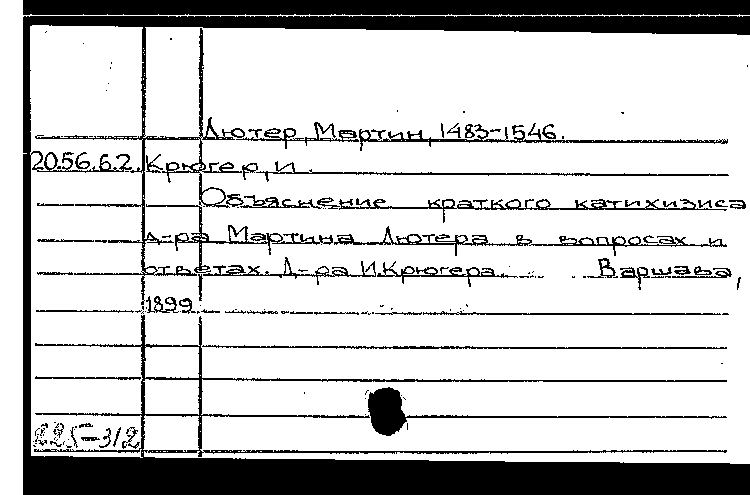 Лютер, Мартин, 1483-1546.
2056.6.2. Крюгер, И.
Объяснение краткого катихизиса
д-ра Мартина Лютера в вопросах и
ответах. Д-ра И.Крюгера. Варшава,
1899
225-312